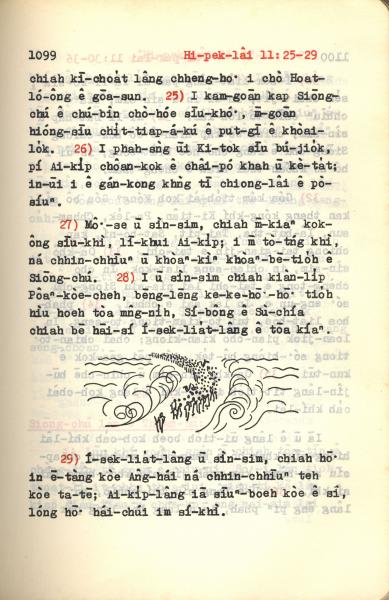 1099 Hi-pek-lâi 11:25-29
chiah kī-choa̍t lâng chheng-hoˑ i chò Hoat-
ló-ông ê gōa-sun. 25) I kam-goān kap Siōng-
chú ê chú-bîn chò-hóe siū-khóˑ, m̄-goān
hióng-siū chi̍t-tiap-á-kú ê put-gī ê khòai-
lo̍k. 26) I phah-sǹg ūi Ki-tok siū bú-jio̍k,
pí Ai-ki̍p choân-kok ê châi-pó khah ū kè-ta̍t;
in-ūi i ê gán-kong khǹg tī chiong-lâi ê pò-
siúⁿ.
27) Mô-se ū sìn-sim, chiah m̄-kiaⁿ kok-
ông siū-khì, lī-khui Ai-ki̍p; i m̄ tò-tńg khì,
ná chhin-chhiūⁿ ū khoaⁿ-kìⁿ khoaⁿ-bē-tio̍h ê
Siōng-chú. 28) I ū sìn-sim chiah kiàn-li̍p
Pôaⁿ-kòe-cheh, bēng-lēng ke-ke-hō͘-hō͘ tio̍h
hiu hoeh tòa mn̂g-nih, Sí-bông ê Sù-chiá
chiah bē hāi-sí Í-sek-lia̍t-lâng ê tōa kiáⁿ.
29) Í-sek-lia̍t-lâng ū sìn-sim, chiah hō͘
in ē-tàng kòe Âng-hái ná chhin-chhiūⁿ teh
kòe ta-tē; Ai-ki̍p-lâng iā siūⁿ-boeh kòe ê sî,
lóng hō͘ hái-chúi im sí-khì.